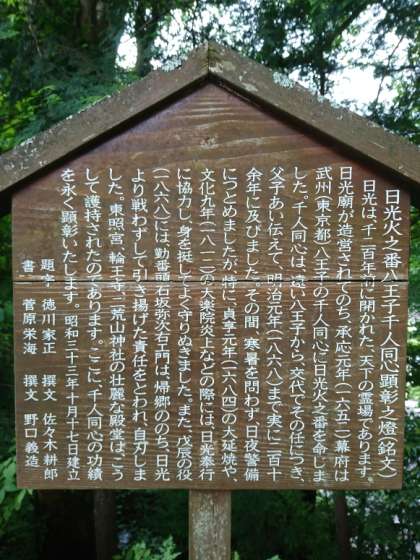 日光火之番八王子千人同心顕彰之燈(銘文)
日光は、千二百年前に開かれた、天下の霊場であります。
日光廟が造営されてのち、承応元年(一六五二)幕府は
武州(東京都)八王子の千人同心に日光火之番を命じま
した。千人同心は、遠い八王子から、交代でその任につき、
父子あい伝えて、明治元年(一八六八)まで実に二百十
余年に及びました。その間、寒暑を問わず、日夜警備
につとめましたが、特に、貞享元年(一六八四)の大延焼や、
文化九年(一八一二)の大楽院炎上などの際には、日光奉行
に協力し、身を挺してよく守りぬきました。また、戊辰の役
(一八六八)には、勤番頭石坂弥次右エ門は、帰郷ののち、日光
より戦わずして引き揚げた責任をとわれ、自刃しま
した。東照宮、輪王寺、二荒山神社の壮麗な殿堂は、こう
して護持されたのであります。ここに、千人同心の功績
を永く顕彰いたします。昭和三十三年十月十七日建立
題字 徳川家正 撰文 佐々木耕郎
書 菅原栄海 撰文 野口義造